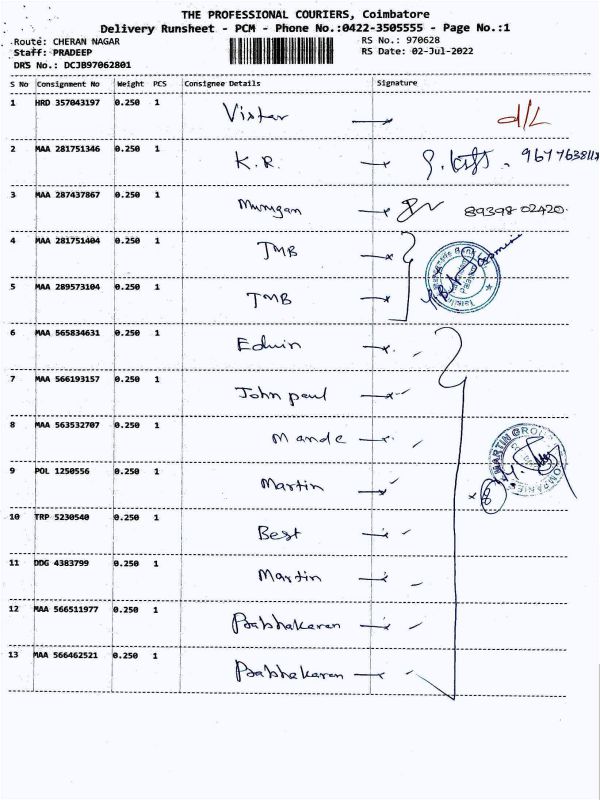 THE PROFESSIONAL COURIERS, Coimbatore
Delivery Runsheet - PCM - Phone No.:0422-3505555 - Page No.:1
Route: CHERAN NAGAR RS No.: 970628
Staff: PRADEEP RS Date: 02-Jul-2022
DRS No.: DCJB97062801
S No Consignment No Weight PCS Consignee Details Signature
1 HRD 357043197 0.250 1 d/L
2 MAA 281751346 0.250 1 K.R.
3 MAA 287437867 0.250 1 Murugan 89398 02420
4 MAA 281751404 0.250 1 TMB
5 MAA 289573104 0.250 1 TMB
6 MAA 565834631 0.250 1 Edwin
7 MAA 566193157 0.250 1 John paul
8 MAA 563532707 0.250 1
MARTIN GROUP
9 POL 1250556 0.250 1 Martin
10 TRP 5230540 0.250 1 Best
11 DDG 4383799 0.250 1 Martin
12 MAA 566511977 0.250 1 Prabhakaran
13 MAA 566462521 0.250 1 Prabhakaran